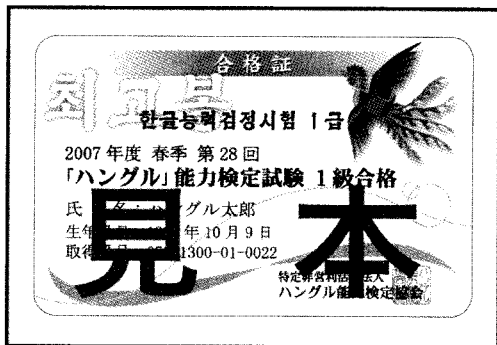 合格証
최고봉
한글능력검정시험 1급
2007年度 春季 第28回
「ハングル」能力検定試験 1級合格
氏 名 グル太郎
生年 年10月9日
取得 1300-01-0022
見本
特定非営利活動法人
ハングル能力検定協会